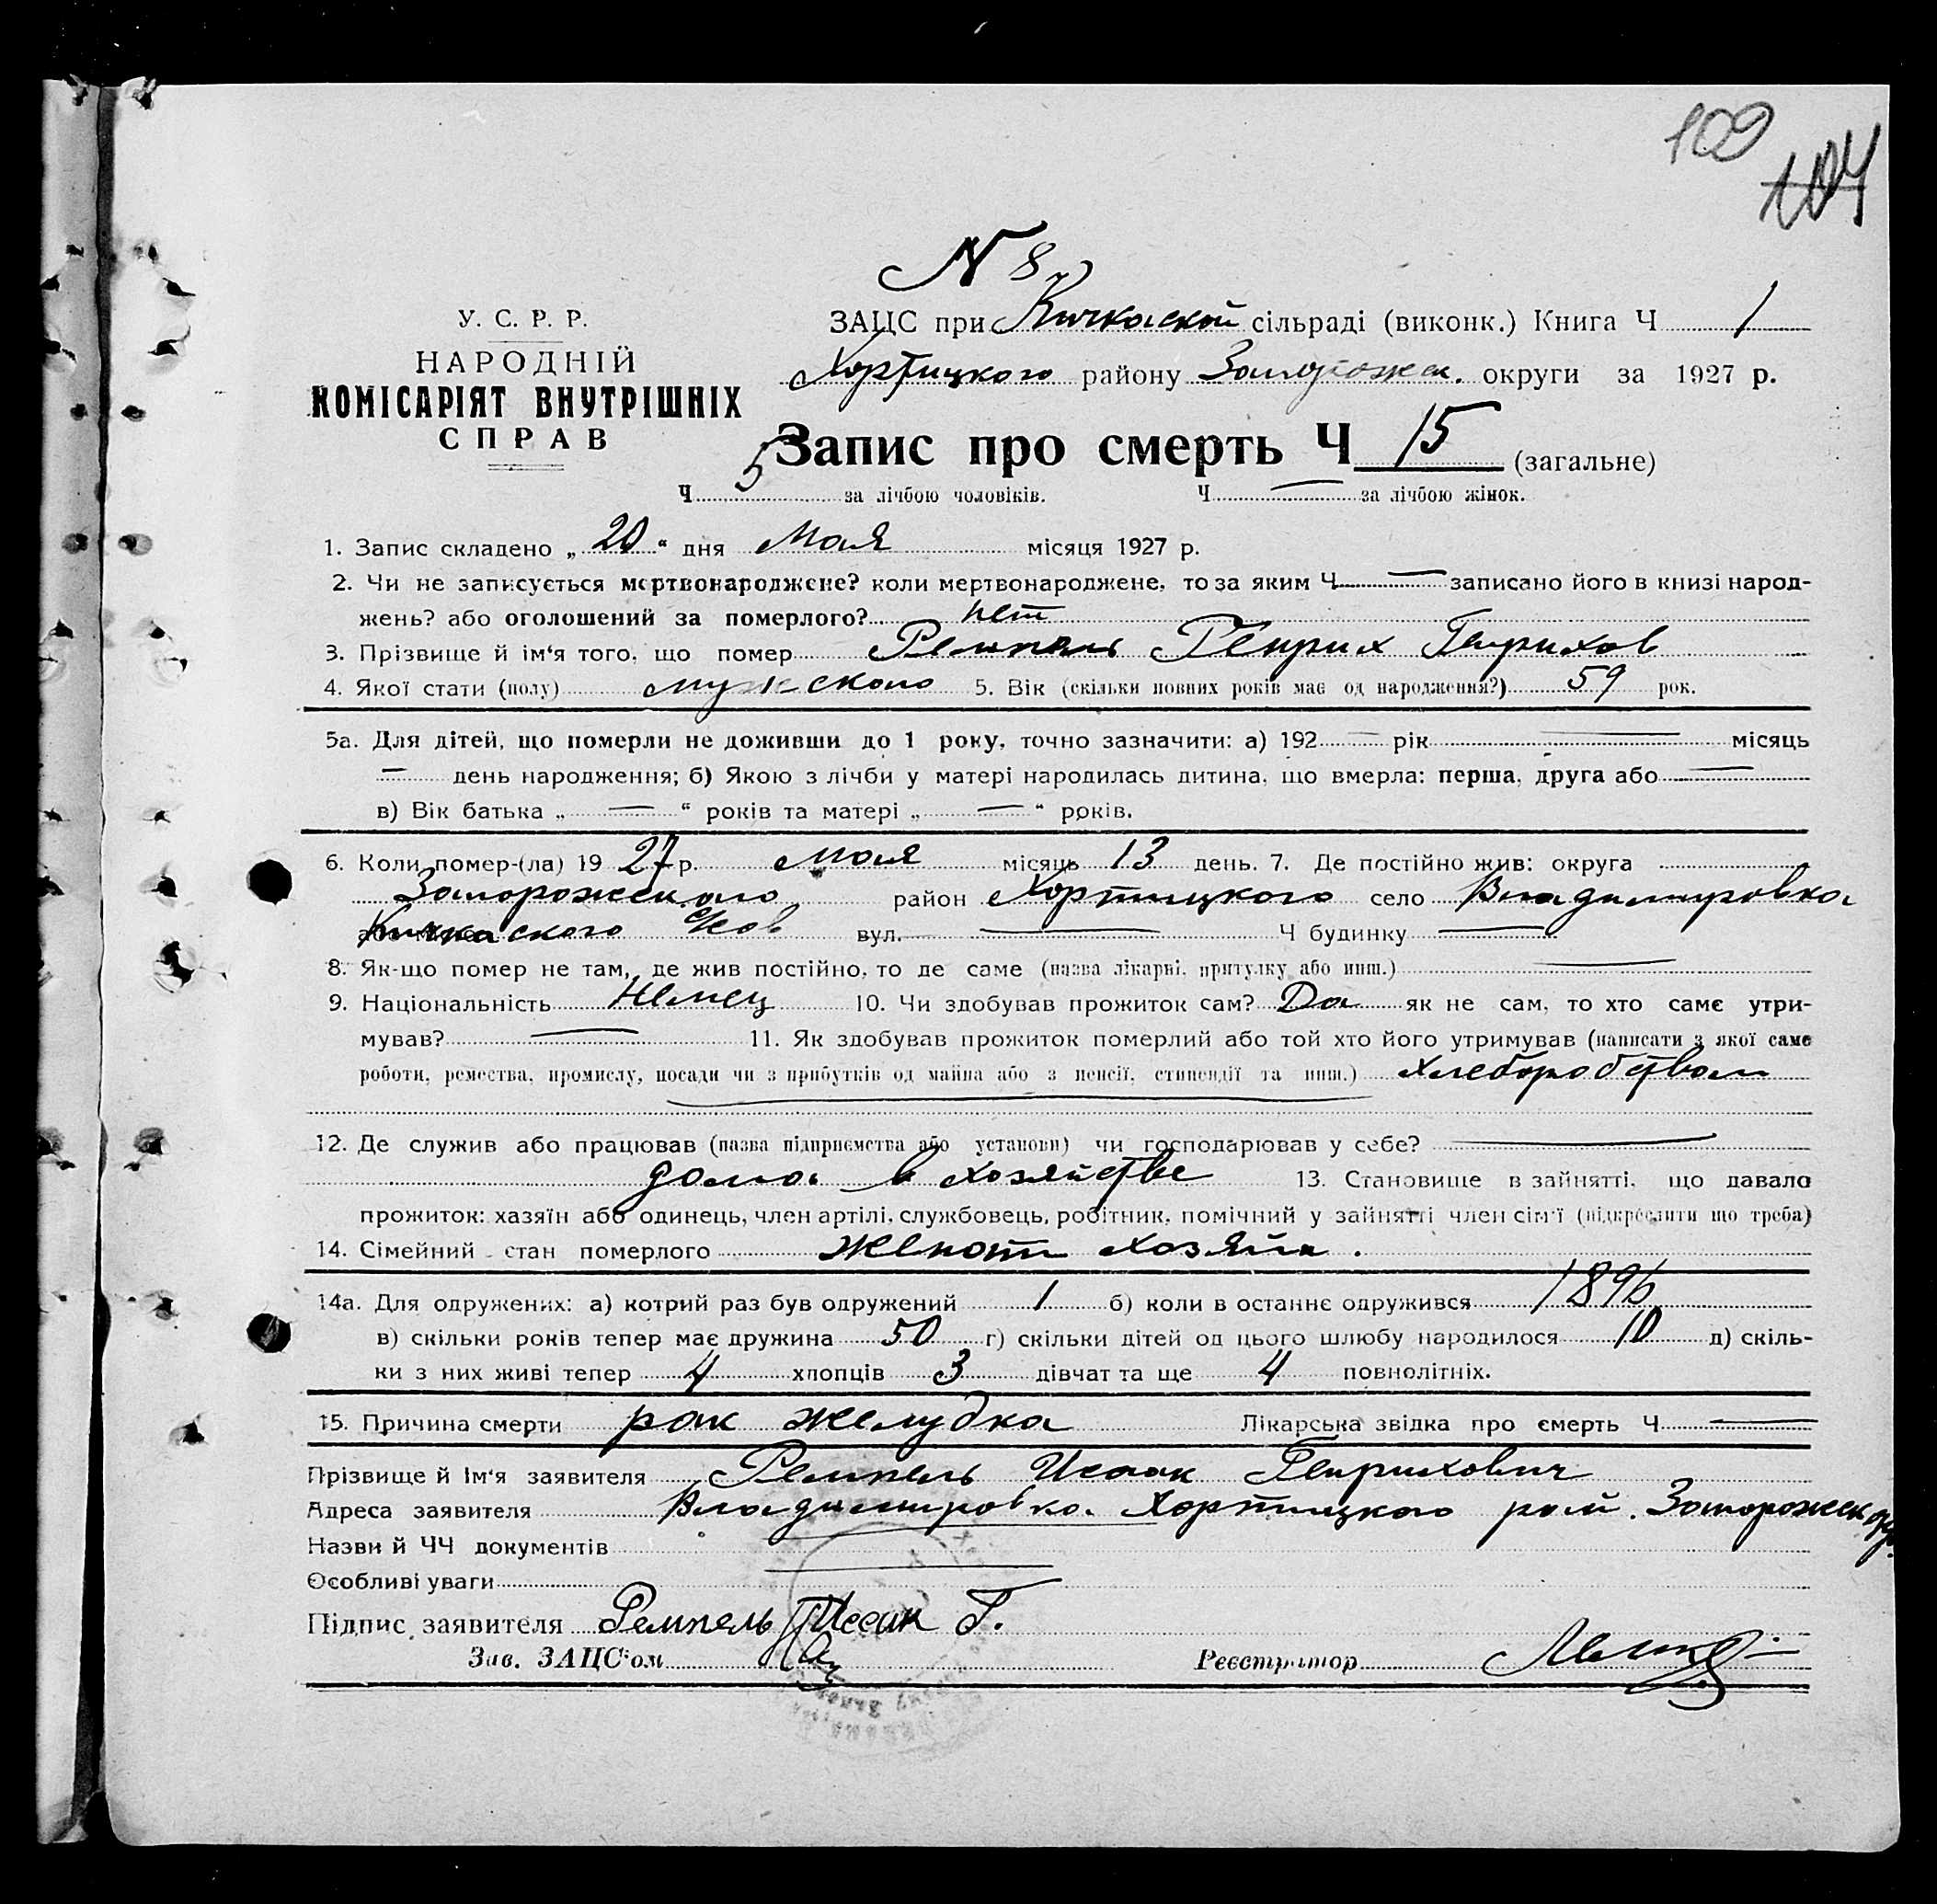 109
104
N 8
У. С. Р. Р.
НАРОДНІЙ
КОМІСАРІЯТ ВНУТРІШНІХ
СПРАВ
ЗАЦС при Кичкаской сільраді (виконк.) Книга Ч 1
Хортицкого району Запорожск. округи за 1927 р.
Запис про смерть Ч 15 (загальне)
Ч 5 за лічбою чоловіків. Ч — за лічбою жінок.
1. Запис складено „ 20 “ дня Мая місяця 1927 р.
2. Чи не записується мертвонароджене? коли мертвонароджене, то за яким Ч — записано його в книзі народ-
жень? або оголошений за померлого? нет
3. Прізвище й ім‘я того, що помер Ремпель Генрих Генрихов
4. Якої стати (полу) мужского 5. Вік (скільки повних років має од народження?) 59 рок.
5а. Для дітей, що померли не доживши до 1 року, точно зазначити: а) 192 — рік — місяць
— день народження; б) Якою з лічби у матері народилась дитина, що вмерла: перша, друга або —
в) Вік батька „ — “ років та матері „ — “ років.
6. Коли помер-(ла) 19 27 р. мая місяць 13 день. 7. Де постійно жив: округа
Запорожского район Хортицкого село Владимировка
Кичкаского вул. — Ч будинку —
8. Як-що помер не там, де жив постійно, то де саме (назва лікарні, притулку або инш.) —
9. Національність Немец 10. Чи здобував прожиток сам? Да як не сам, то хто саме утри-
мував? — 11. Як здобував прожиток померлий або той хто його утримував (написати з якої саме
роботи, ремества, промислу, посади чи з прибутків од майна або з пенсії, стипендії та инш.) хлеборобством
12. Де служив або працював (назва підприємства або установи) чи господарював у себе? —
дома в хозяйстве 13. Становище в зайнятті, що давало
прожиток: хазяїн або одинець, член артілі, службовець, робітник, помічний у зайнятті член сім‘ї (підкреслити що треба)
14. Сімейний стан померлого женат хозяин .
14а. Для одружених: а) котрий раз був одружений 1 б) коли в останнє одружився 1896
в) скільки років тепер має дружина 50 г) скільки дітей од цього шлюбу народилося 10 д) скіль-
ки з них живі тепер 4 хлопців 3 дівчат та ще 4 повнолітніх.
15. Причина смерти рак желудка Лікарська звідка про смерть Ч —
Прізвище й Ім‘я заявителя Ремпель Исаак Генрихович
Адреса заявителя Владимировка Хортицкого рай. Запорожск окр.
Назви й ЧЧ документів
Особливі уваги
Підпис заявителя Ремпель Исаак Г.
Зав. ЗАЦС‘ом Реєстратор